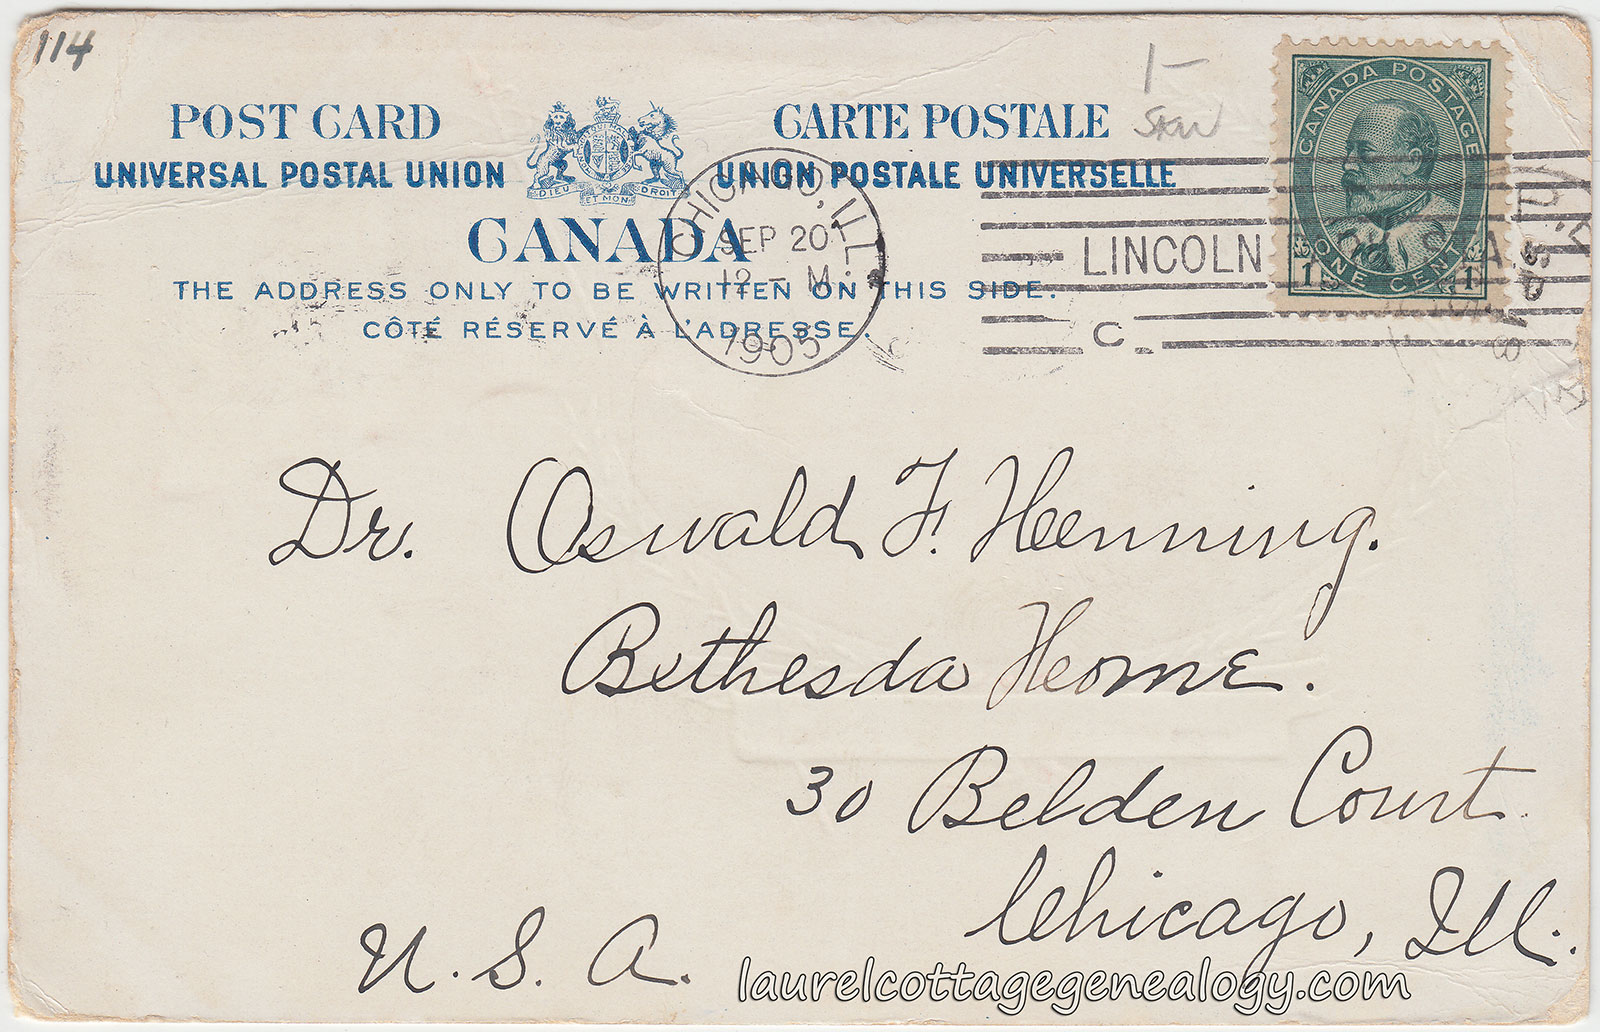 114
POST CARD
CARTE POSTALE
UNIVERSAL POSTAL UNION
UNION POSTALE UNIVERSELLE
DIEU ET MON DROIT
CANADA
THE ADDRESS ONLY TO BE WRITTEN ON THIS SIDE.
CÔTÉ RÉSERVÉ À L'ADRESSE.
CHICAGO, ILL.
SEP 20
12 - M.
1905
LINCOLN
STA
C
CANADA POSTAGE
1 ONE CENT 1
Dr. Oswald F. Henning.
Bethesda Home.
30 Belden Court
Chicago, Ill.
U. S. A.
laurelcottagegenealogy.com